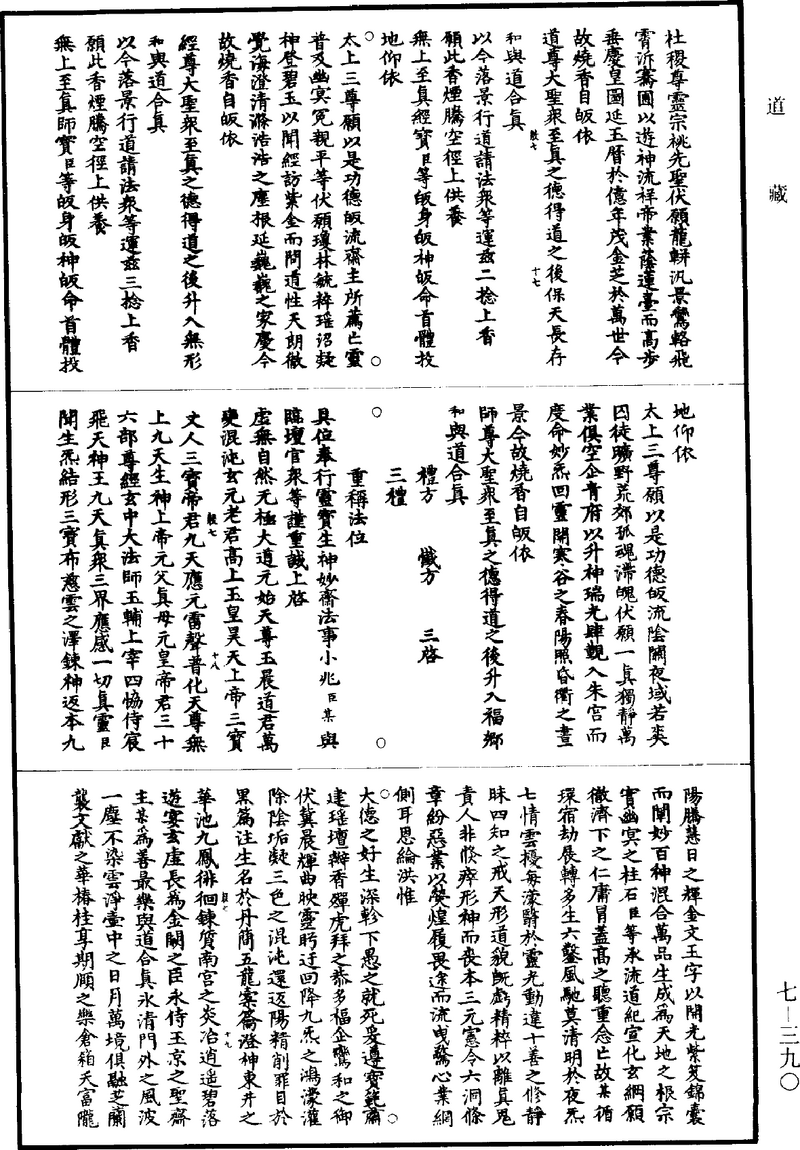 道藏
七—三九〇
社稷尊靈宗祧先聖伏願龍軿汎景鸞輅飛
霄泝騫圃以遊神流祥帝業蔭蓮臺而高步
垂慶皇圖延玉曆於億年茂金芝於萬世今
故燒香自皈依
道尊大聖衆至真之德得道之後保天長存
和與道合真
以今落景行道請法衆等運茲二捻上香
願此香煙騰空徑上供養
無上至真經寶臣等皈身皈神皈命首體投
地仰依
太上三尊願以是功德皈流齋主所薦亡靈
普及幽冥冤親平等伏願瓊林毓粹瑶沼凝
神登碧玉以聞經訪紫金而問道性天朗徹
覺海澄清滌浩浩之塵根延巍巍之家慶今
故燒香自皈依
經尊大聖衆至真之德得道之後升入無形
和與道合真
以今落景行道請法衆等運茲三捻上香
願此香煙騰空徑上供養
無上至真師寶臣等皈身皈神皈命首體投
地仰依
太上三尊願以是功德皈流陰關夜域若奕
囚徒曠野荒郊孤魂滯魄伏願一真獨靜萬
業俱空企青府以升神瑞光肆觀入朱宮而
度命妙炁回靈開寒谷之春陽照昏衢之晝
景今故燒香自皈依
師尊大聖衆至真之德得道之後升入福鄉
和與道合真
禮方 懺方 三啓
三禮
重稱法位
具位奉行靈寶生神妙齋法事小兆臣某與
臨壇官衆等謹重誠上啓
虛無自然元極大道元始天尊玉晨道君萬
變混沌玄元老君高上玉皇昊天上帝三寶
丈人三寶帝君九天應元雷聲普化天尊無
上九天生神上帝元父真母元皇帝君三十
六部尊經玄中大法師玉輔上宰四恊侍宸
飛天神王九天真衆三界應感一切真靈臣
聞生炁結形三寶布慈雲之澤鍊神返本九
陽騰慧日之輝金文玉字以開光紫笈錦囊
而闡妙百神混合萬品生成爲天地之根宗
實幽冥之柱石臣等永流道紀宣化玄綱願
徹濟下之仁庸冐蓋高之聽重念亡故某循
環宿劫展轉多生六鑿風馳莫清明於夜炁
七情雲擾每濛翳於靈光動違十善之修靜
昧四知之戒天形道貌旣虧精粹以離真鬼
責人非倐瘁形神而喪本三元憲令六洞條
章紛惡業以熒煌履畏途而流曳驚心業網
側耳恩綸洪惟
大德之好生深軫下愚之就死爰遵寶範肅
建瑶壇辦香殫虎拜之恭多福企鸞和之御
伏冀晨輝曲映靈眄迂回降九炁之鴻濛灌
除陰垢凝三色之混沌還迈陽精削罪目於
黑篇注生名於丹簡五龍槖籥澄神東井之
華池九鳳徘徊鍊質南宮之炎冶逍遥碧落
遊宴玄虛長爲金闕之臣永侍玉京之聖齋
主某爲善最樂與道合真氷清門外之風波
一塵不染雲淨壷中之日月萬境俱融芝蘭
襲文獻之華椿桂享期頤之樂倉箱天富隴